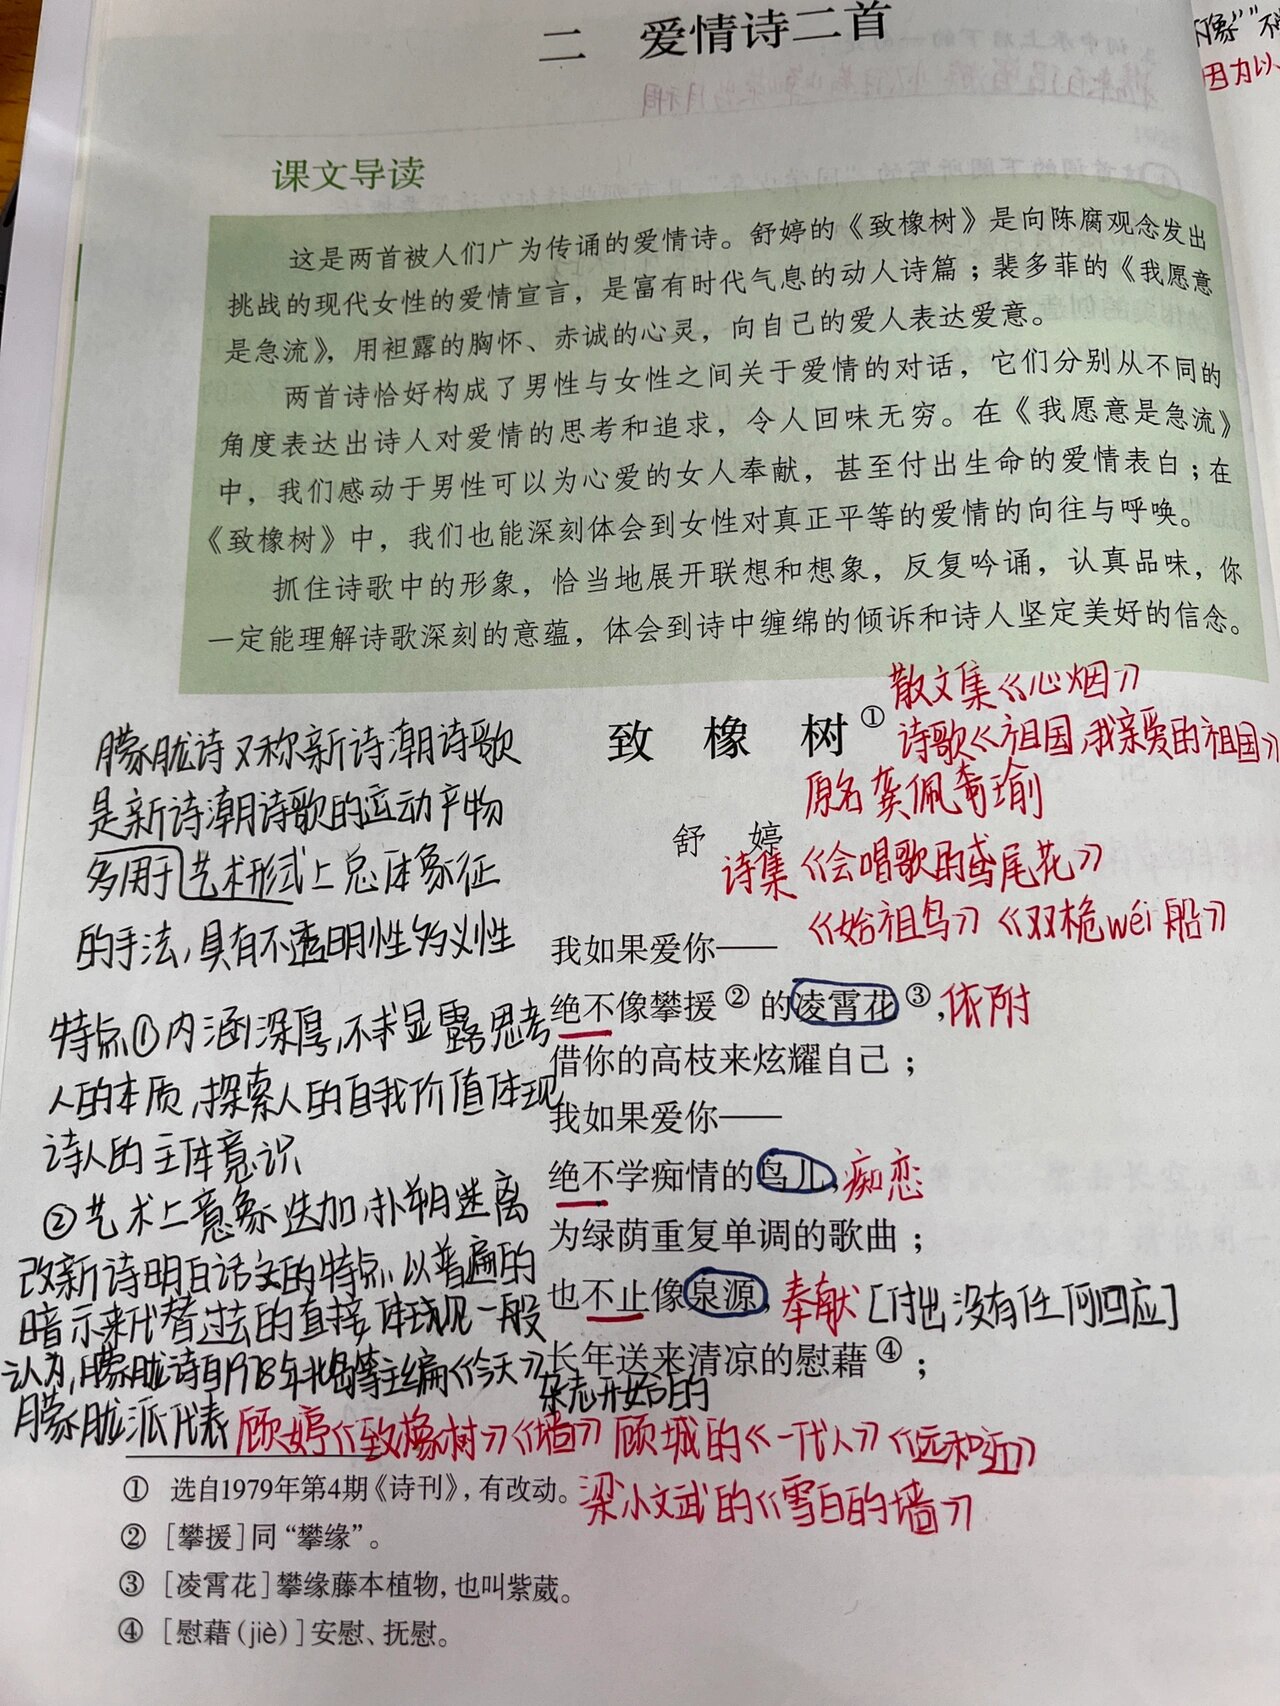 二 爱情诗二首
课文导读
这是两首被人们广为传诵的爱情诗。舒婷的《致橡树》是向陈腐观念发出
挑战的现代女性的爱情宣言，是富有时代气息的动人诗篇；裴多菲的《我愿意
是急流》，用袒露的胸怀、赤诚的心灵，向自己的爱人表达爱意。
两首诗恰好构成了男性与女性之间关于爱情的对话，它们分别从不同的
角度表达出诗人对爱情的思考和追求，令人回味无穷。在《我愿意是急流》
中，我们感动于男性可以为心爱的女人奉献，甚至付出生命的爱情表白；在
《致橡树》中，我们也能深刻体会到女性对真正平等的爱情的向往与呼唤。
抓住诗歌中的形象，恰当地展开联想和想象，反复吟诵，认真品味，你
一定能理解诗歌深刻的意蕴，体会到诗中缠绵的倾诉和诗人坚定美好的信念。
因为以
致橡树①
散文集《心烟》
诗歌《祖国,我亲爱的祖国》
原名 龚佩瑜
舒婷
诗集《会唱歌的鸢尾花》
《始祖鸟》《双桅wéi船》
朦胧诗又称新诗潮诗歌
是新诗潮诗歌的运动产物
多用于艺术形式上总体象征
的手法,具有不透明性多义性
特点①内涵深厚,不求显露思考
人的本质,探索人的自我价值体现
诗人的主体意识
②艺术上意象迭加,扑朔迷离
改新诗明白话文的特点,以普遍的
暗示来代替过去的直接体现一般
认为,朦胧诗自1978年北岛等主编《今天》
杂志开始的
朦胧派代表 顾婷《致橡树》《墙》顾城的《一代人》《远和近》
梁小文武的《雪白的墙》
我如果爱你——
绝不像攀援②的凌霄花③,依附
借你的高枝来炫耀自己；
我如果爱你——
绝不学痴情的鸟儿,痴恋
为绿荫重复单调的歌曲；
也不止像泉源,奉献[付出没有任何回应]
长年送来清凉的慰藉④；
① 选自1979年第4期《诗刊》,有改动。
② [攀援]同“攀缘”。
③ [凌霄花]攀缘藤本植物,也叫紫葳。
④ [慰藉(jiè)]安慰、抚慰。